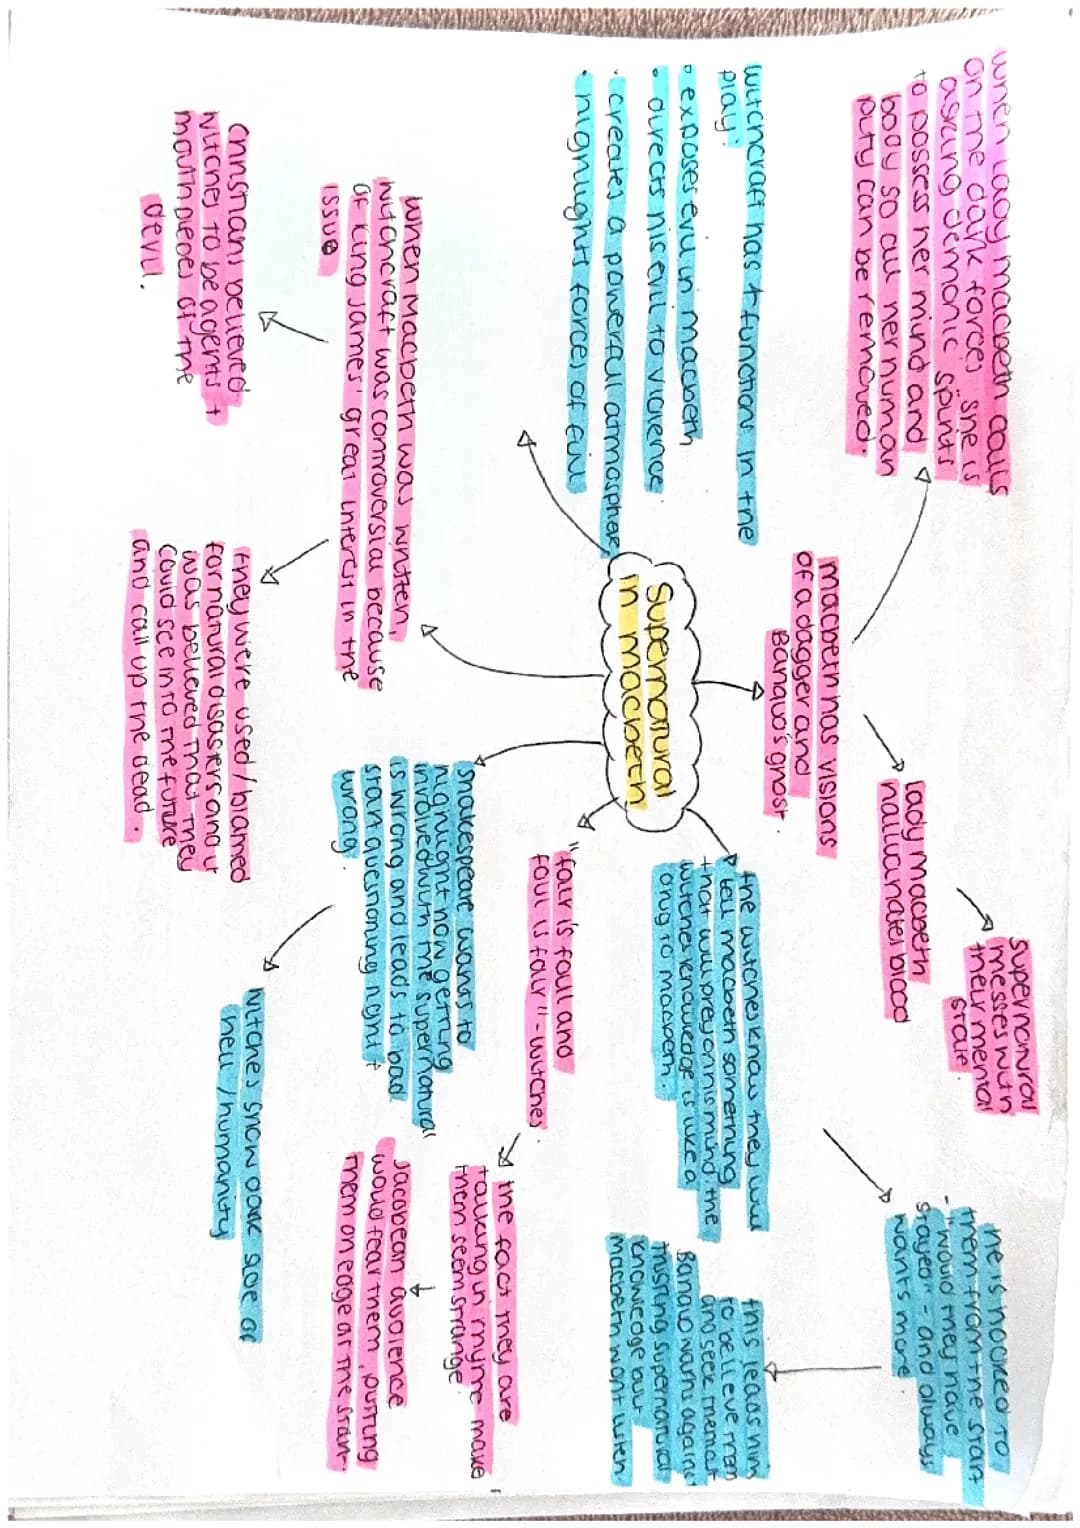 Supernatural
in macbeth
when lady macbeth calls
on the dark forces, she is
asking demonic spirits
to possess her mind and
body so all her human
pity can be removed.
macbeth has visions
of a dagger and
Banquo's ghost.
lady macbeth
hallucinates blood
supernatural
messes with
their mental
state.
witchcraft has 4 function in the
play:
• exposes evil in macbeth
• directs his evil to violence
• creates a powerfull atmosphere
• highlights forces of evil
the witches know they will
tell macbeth something
that will prey on his mind the
witches knowledge is like a
drug to macbeth.
he is hooked to
them from the start
- would they have
stayed" - and always
wants more
this leads him
to believe them
and seek them out
Banquo warns against
trusting supernatural
knowledge but
macbeth wont listen
"fair is foul and
foul is fair" - witches
the fact they are
talking in rhyme make
them seem strange.
Jacobean audience
would fear them, putting
them on edge at the start.
Shakespeare wants to
highlight how getting
involved with the supernatural
is wrong and leads to bad
start questioning right +
wrong.
witches show dark side of
hell / humanity
when macbeth was written,
witchcraft was controversial because
of King James' great interest in the
issue
Christians believed
witches to be agents +
mouthpieces of the
devil.
they were used / blamed
for natural disasters and it
was believed that they
could see into the future
and call up the dead.